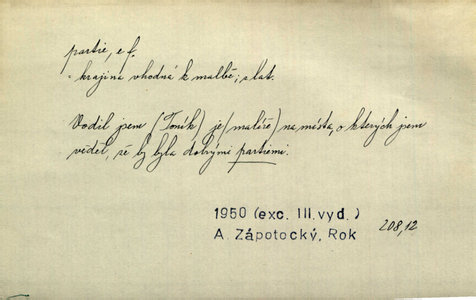 partie, e f.
- krajina vhodná k malbě; slat.
Vodil jsem (Toník) je (malíře) na místa, o kterých jsem
věděl, že by byla dobrými partiemi.
1950 (exc. III. vyd.)
A. Zápotocký, Rok
208,12